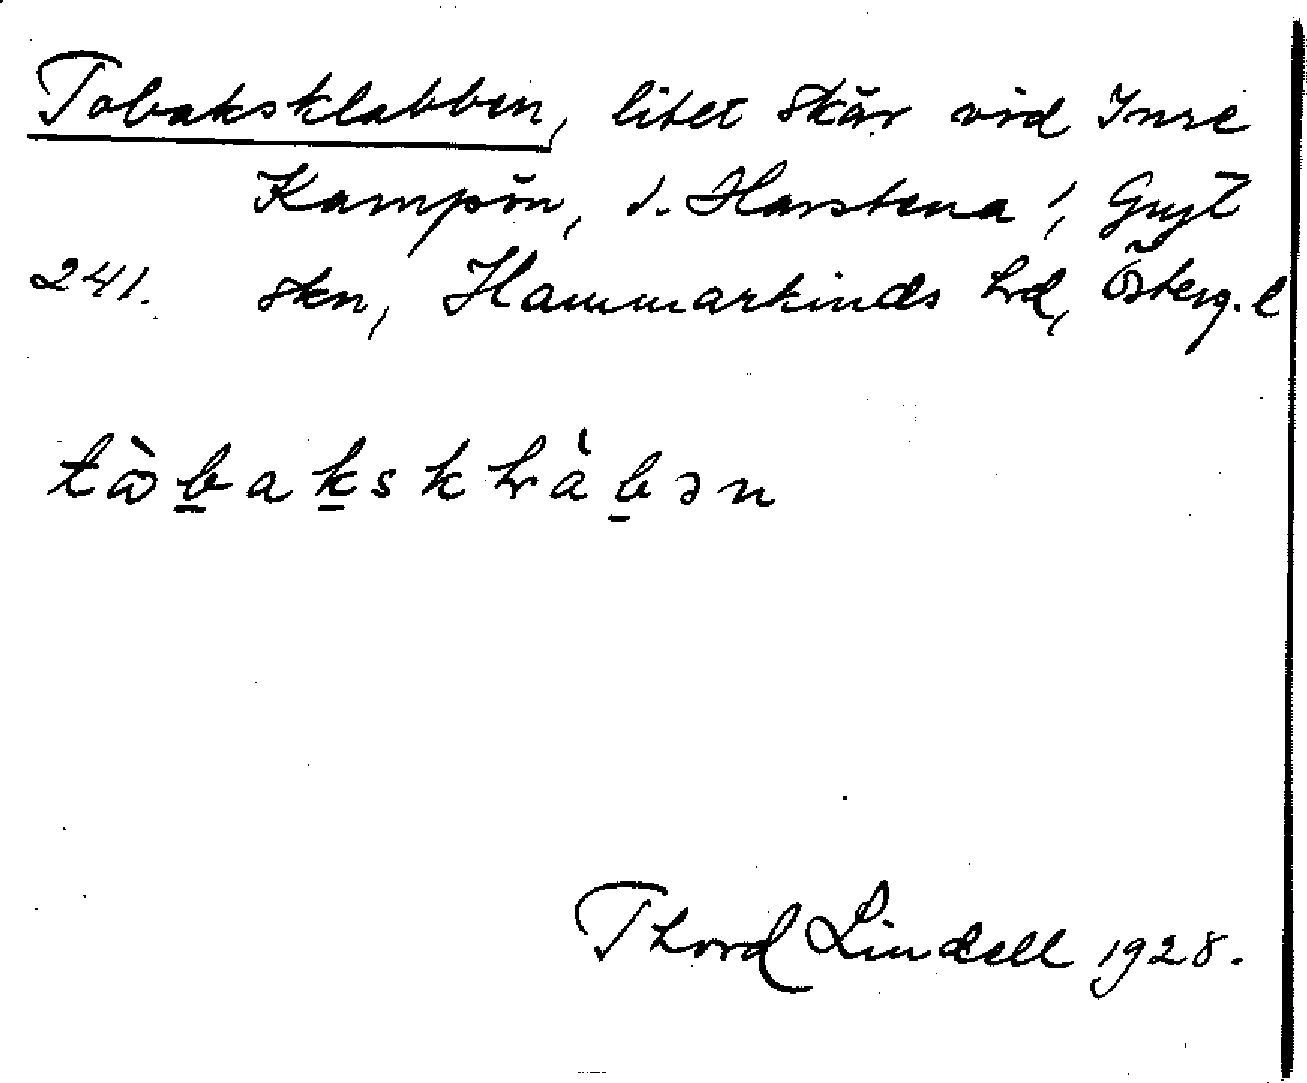 Tobaksklabben, litet skär vid Inre
Kampön, s. Harstena !, Gryt
241. skn, Hammarkinds hd, Österg. l
Thord Lindell 1928.